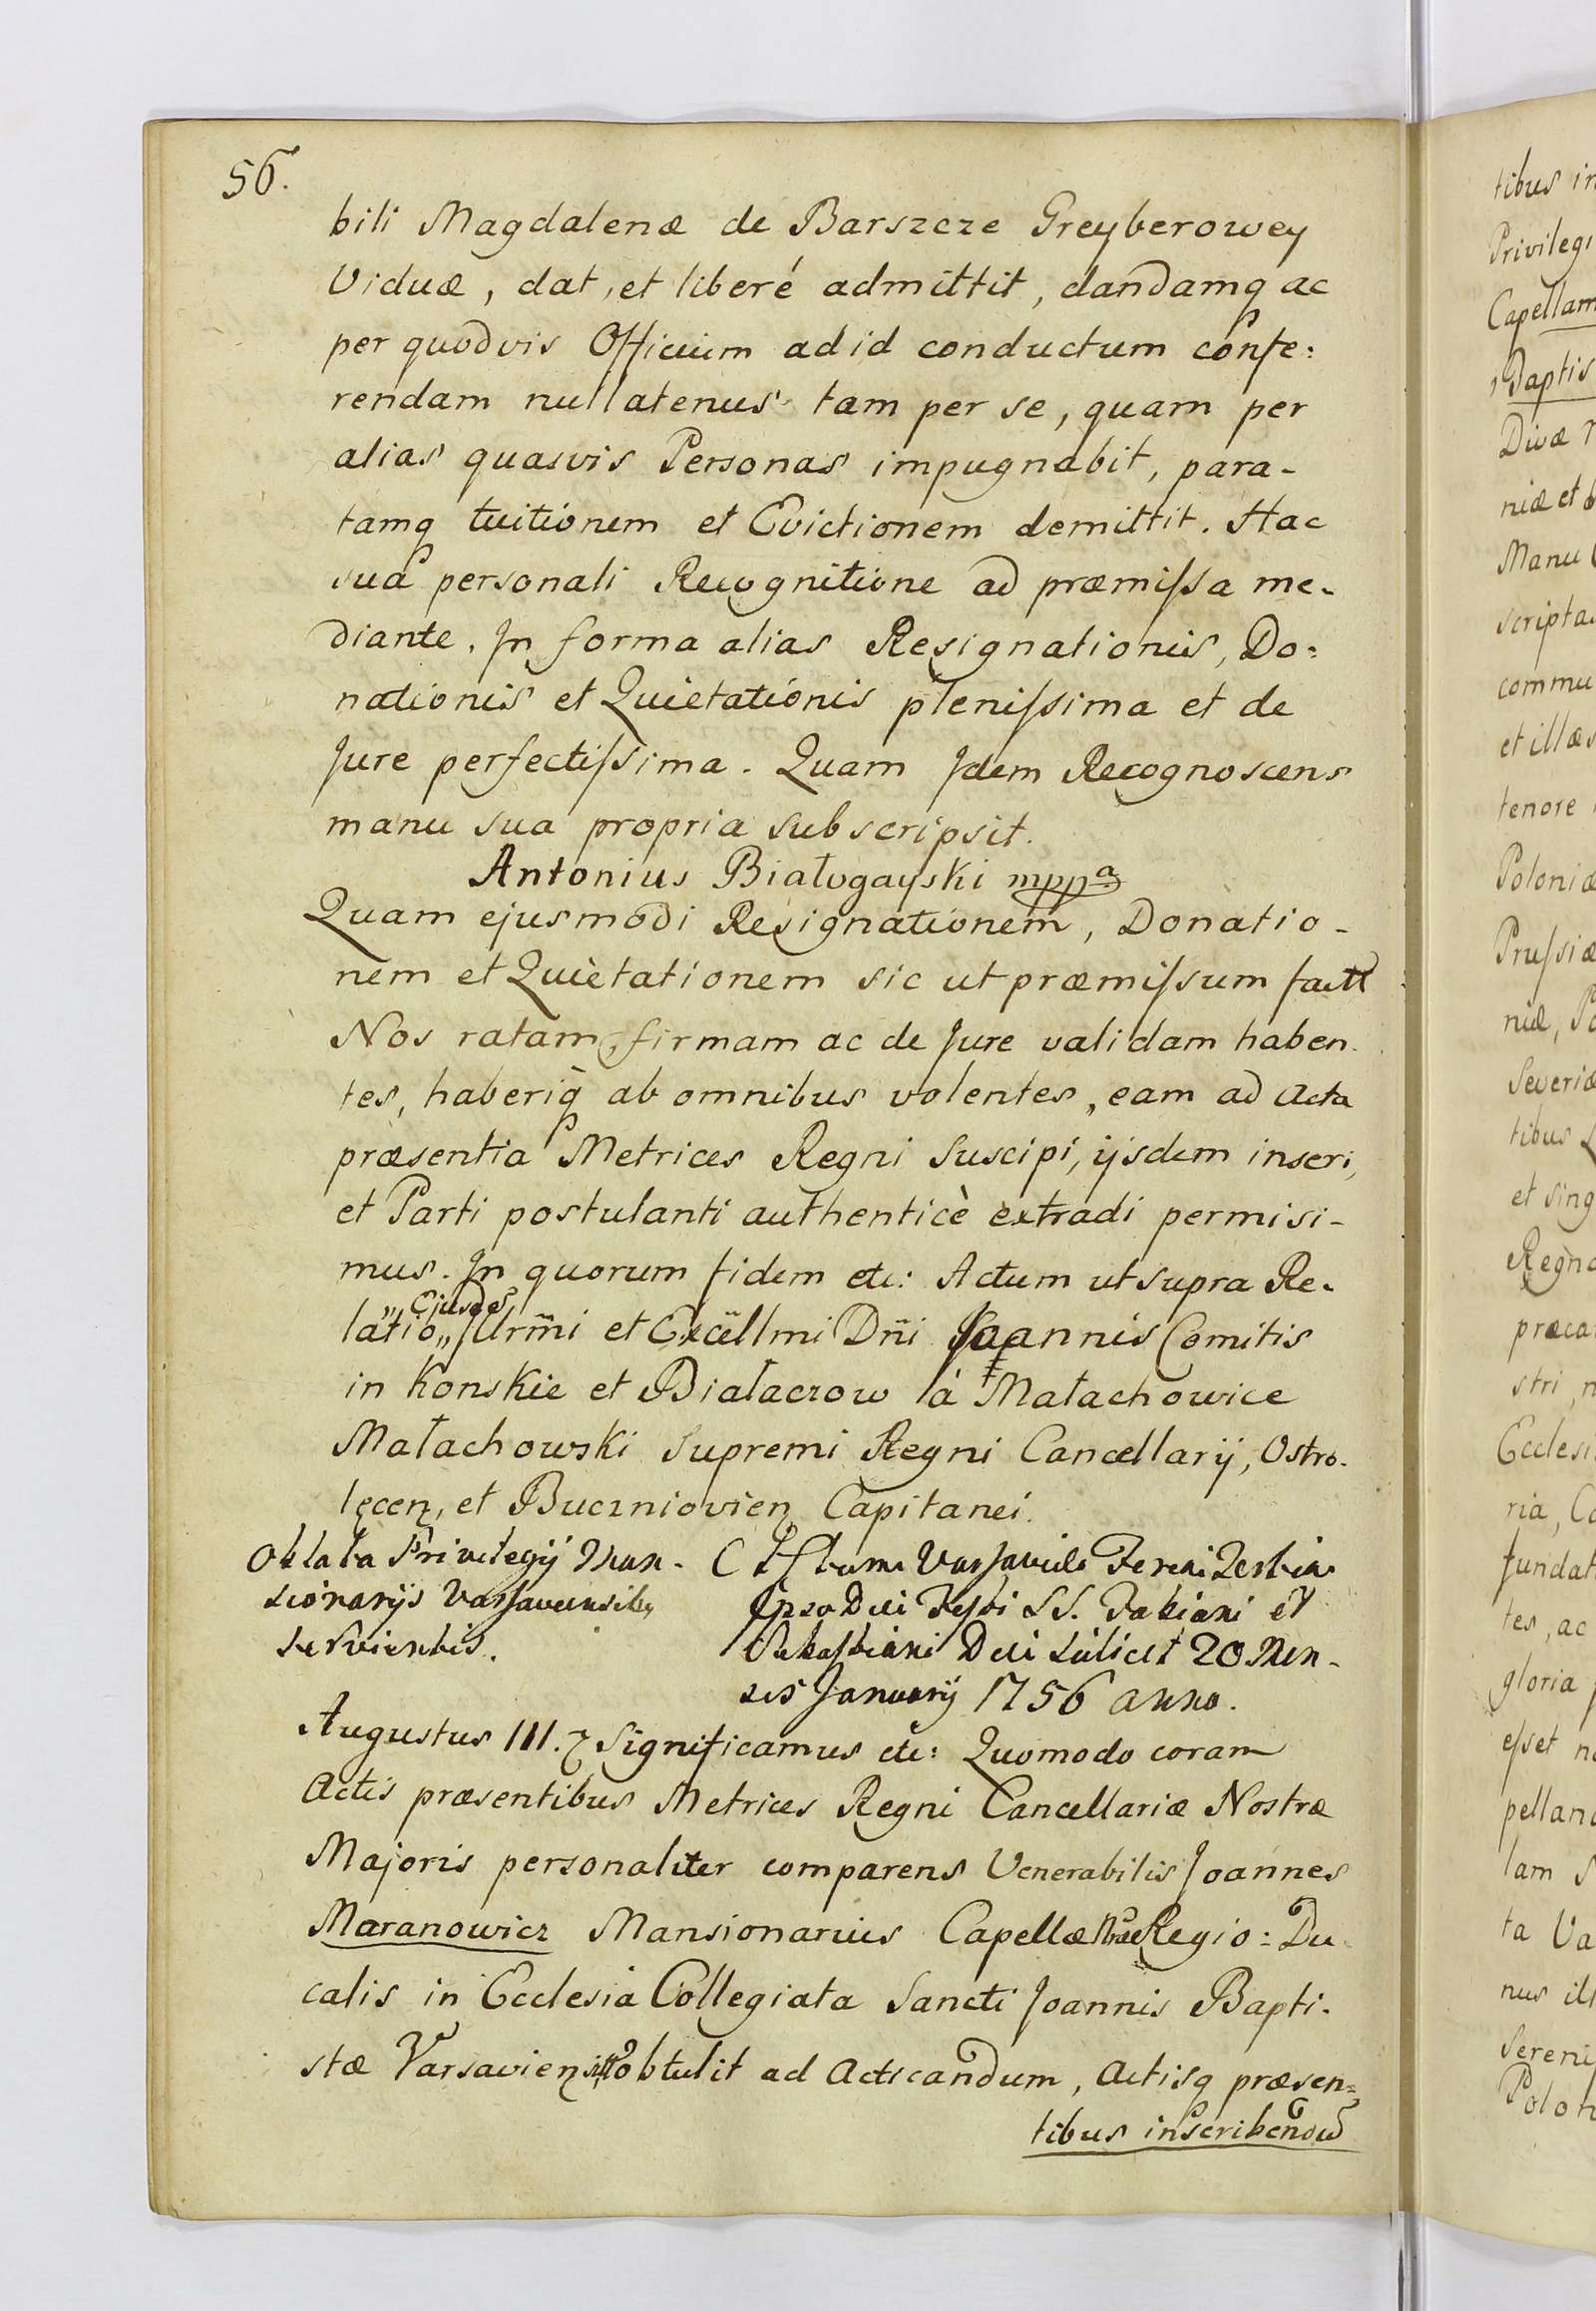 56.
bili Magdalenæ de Barszcze Greyberowey
Viduæ, dat, et liberé admittit, dandamq ac
per quodvis Officium ad id conductum confe:
rendam nullatenus tam per se, quam per
alias quasvis Personas impugnabit, para-
tamq tuitionem et Evictionem demittit. Hac
sua personali Recognitione ad præmissa me-
diante. In forma alias Resignationis, Do:
nationis et Quietationis plenissima et de
Jure perfectissima. Quam Idem Recognoscens
manu sua propria subscripsit.
Antonius Białogayski mppa
Quam ejusmodi Resignationem, Donatio-
nem et Quietationem sic ut præmissum
Nos ratam, firmam ac de Jure validam haben
tes, haberiq ab omnibus volentes, eam ad Acta
præsentia Metrices Regni Suscipi, ijsdem inseri,
et Parti postulanti authenticè extradi permisi-
mus. In quorum fidem etc: Actum ut supra Re-
latio Ejusdem Illrm̃i et Excellmi Dñi Joannis Comitis
in Konskie et Białaczow à Małachowice
Małachowski Supremi Regni Cancellarij, Ostro-
łęcen, et Buczniovien Capitanei.
Oblata Privilegij Man-
sionarijs Varsaviensibus
servientis.
Actum Varsaviæ Feria Tertia
Ipso Die Festi SS. Fabiani et
Sebastiani Die scilicet 20 Men-
sis Januarij 1756 anno.
Augustus III. Significamus etc: Quomodo coram
Actis præsentibus Metrices Regni Cancellariæ Nostræ
Majoris personaliter comparens Venerabilis Joannes
Maranowicz Mansionarius Capellæ Nræ Regio: Du
calis in Ecclesia Collegiata Sancti Joannis Bapti-
stæ Varsavien obtulit ad Acticandum, Actisq præsen=
tibus inscribendum
tibus in
Privilegi
Capellam
Baptis
Divæ
niæ et
Manu
scripta
commu
et illæs
tenore
Poloniæ
Prussiæ
niæ, Po
Severiæ
tibus
et sing
Regno
præca
stri, n
Ecclesi
ria, Ca
fundat
tes, ac
gloria
esset n
pellan
lam S
ta Va
nus ill
Sereni
Polon